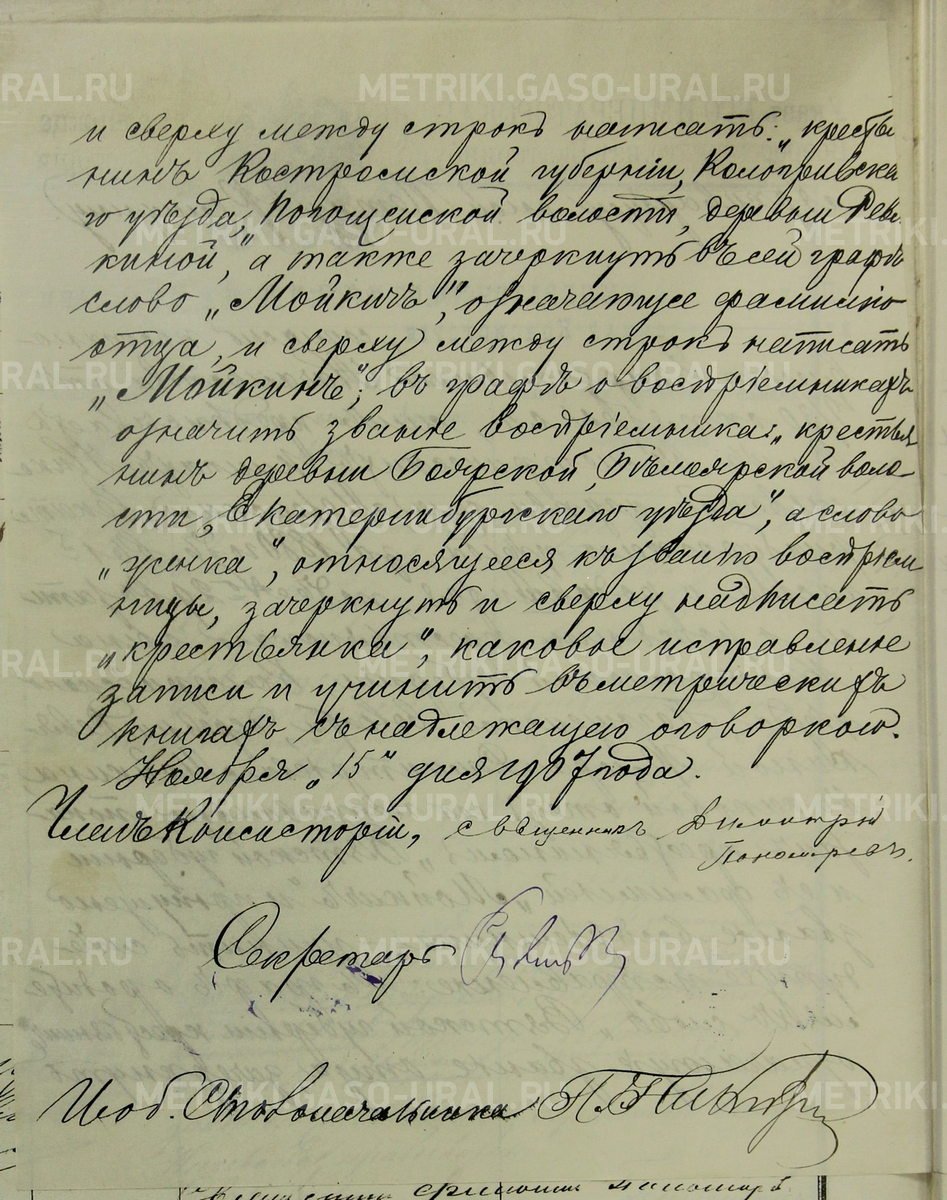 и сверху между строкъ написать: „крестья
нинъ Костромской губерніи, Кологривска
го уѣзда, волости, деревни
киной", а также зачеркнуть въ сей графѣ
слово „Мойкичъ", означающее фамилію
отца, и сверху между строкъ написать
„Мойкинъ"; въ графѣ о воспріемникахъ
означить званіе воспріемника: „крестья
нинъ деревни Боярской, Бѣлоярской воло
сти, Екатеринбургскаго уѣзда", а слово
„женка", относящееся къ званію воспріем
ницы, зачеркнуть и сверху надписать
„крестьянка", каковое исправленіе
записи и учинить въ метрическихъ
книгахъ съ надлежащею оговоркою.
Ноября „15" дня 1907 года.
Членъ Консисторіи, священникъ Димитрій
Пономаревъ.
Секретарь
И. об. Столоначальника П.
METRIKI.GASO-URAL.RU